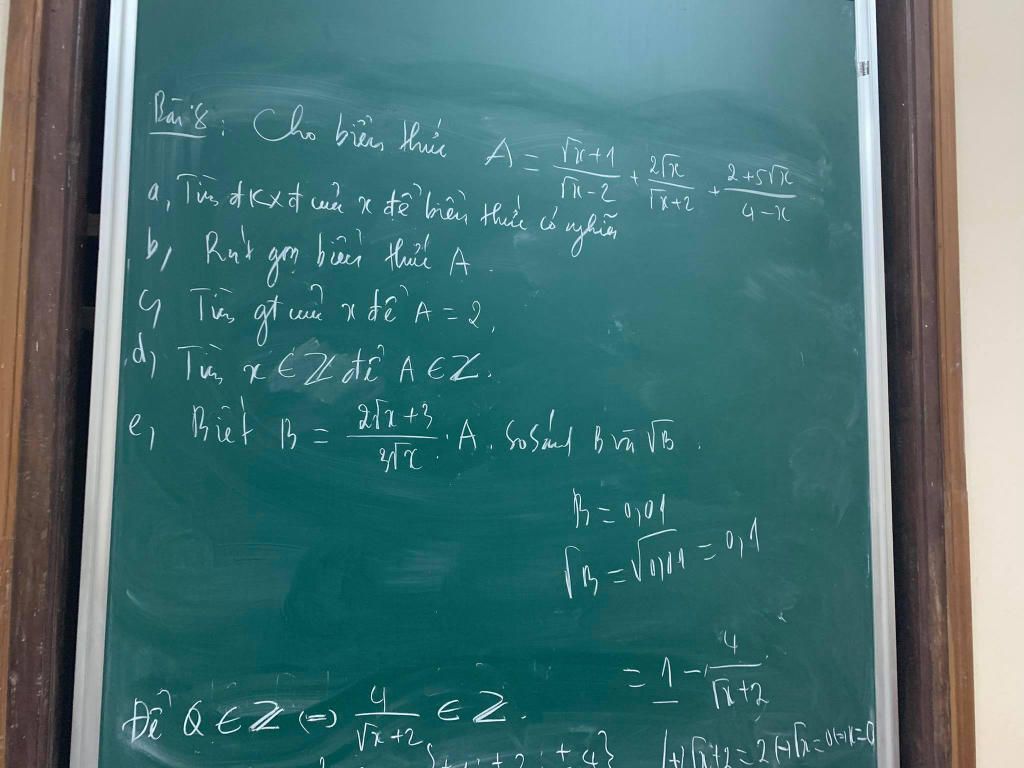 Bài 8 : Cho biểu thức A = \frac{\sqrt{x}+1}{\sqrt{x}-2} + \frac{2\sqrt{x}}{\sqrt{x}+2} + \frac{2+5\sqrt{x}}{4-x}
a, Tìm đkxđ của x để biểu thức có nghĩa
b, Rút gọn biểu thức A.
c, Tìm gt của x để A = 2.
d, Tìm x ∈ Z để A ∈ Z.
e, Biết B = \frac{2\sqrt{x}+3}{3\sqrt{x}} . A. So sánh B và \sqrt{B}.
B = 0,01
\sqrt{B} = \sqrt{0,01} = 0,1
= 1 - \frac{4}{\sqrt{x}+2}
Để Q ∈ Z (=) \frac{4}{\sqrt{x}+2} ∈ Z.
±2; ±4}
(+) \sqrt{x}+2 = 2 (=) \sqrt{x} = 0 (=) x = 0